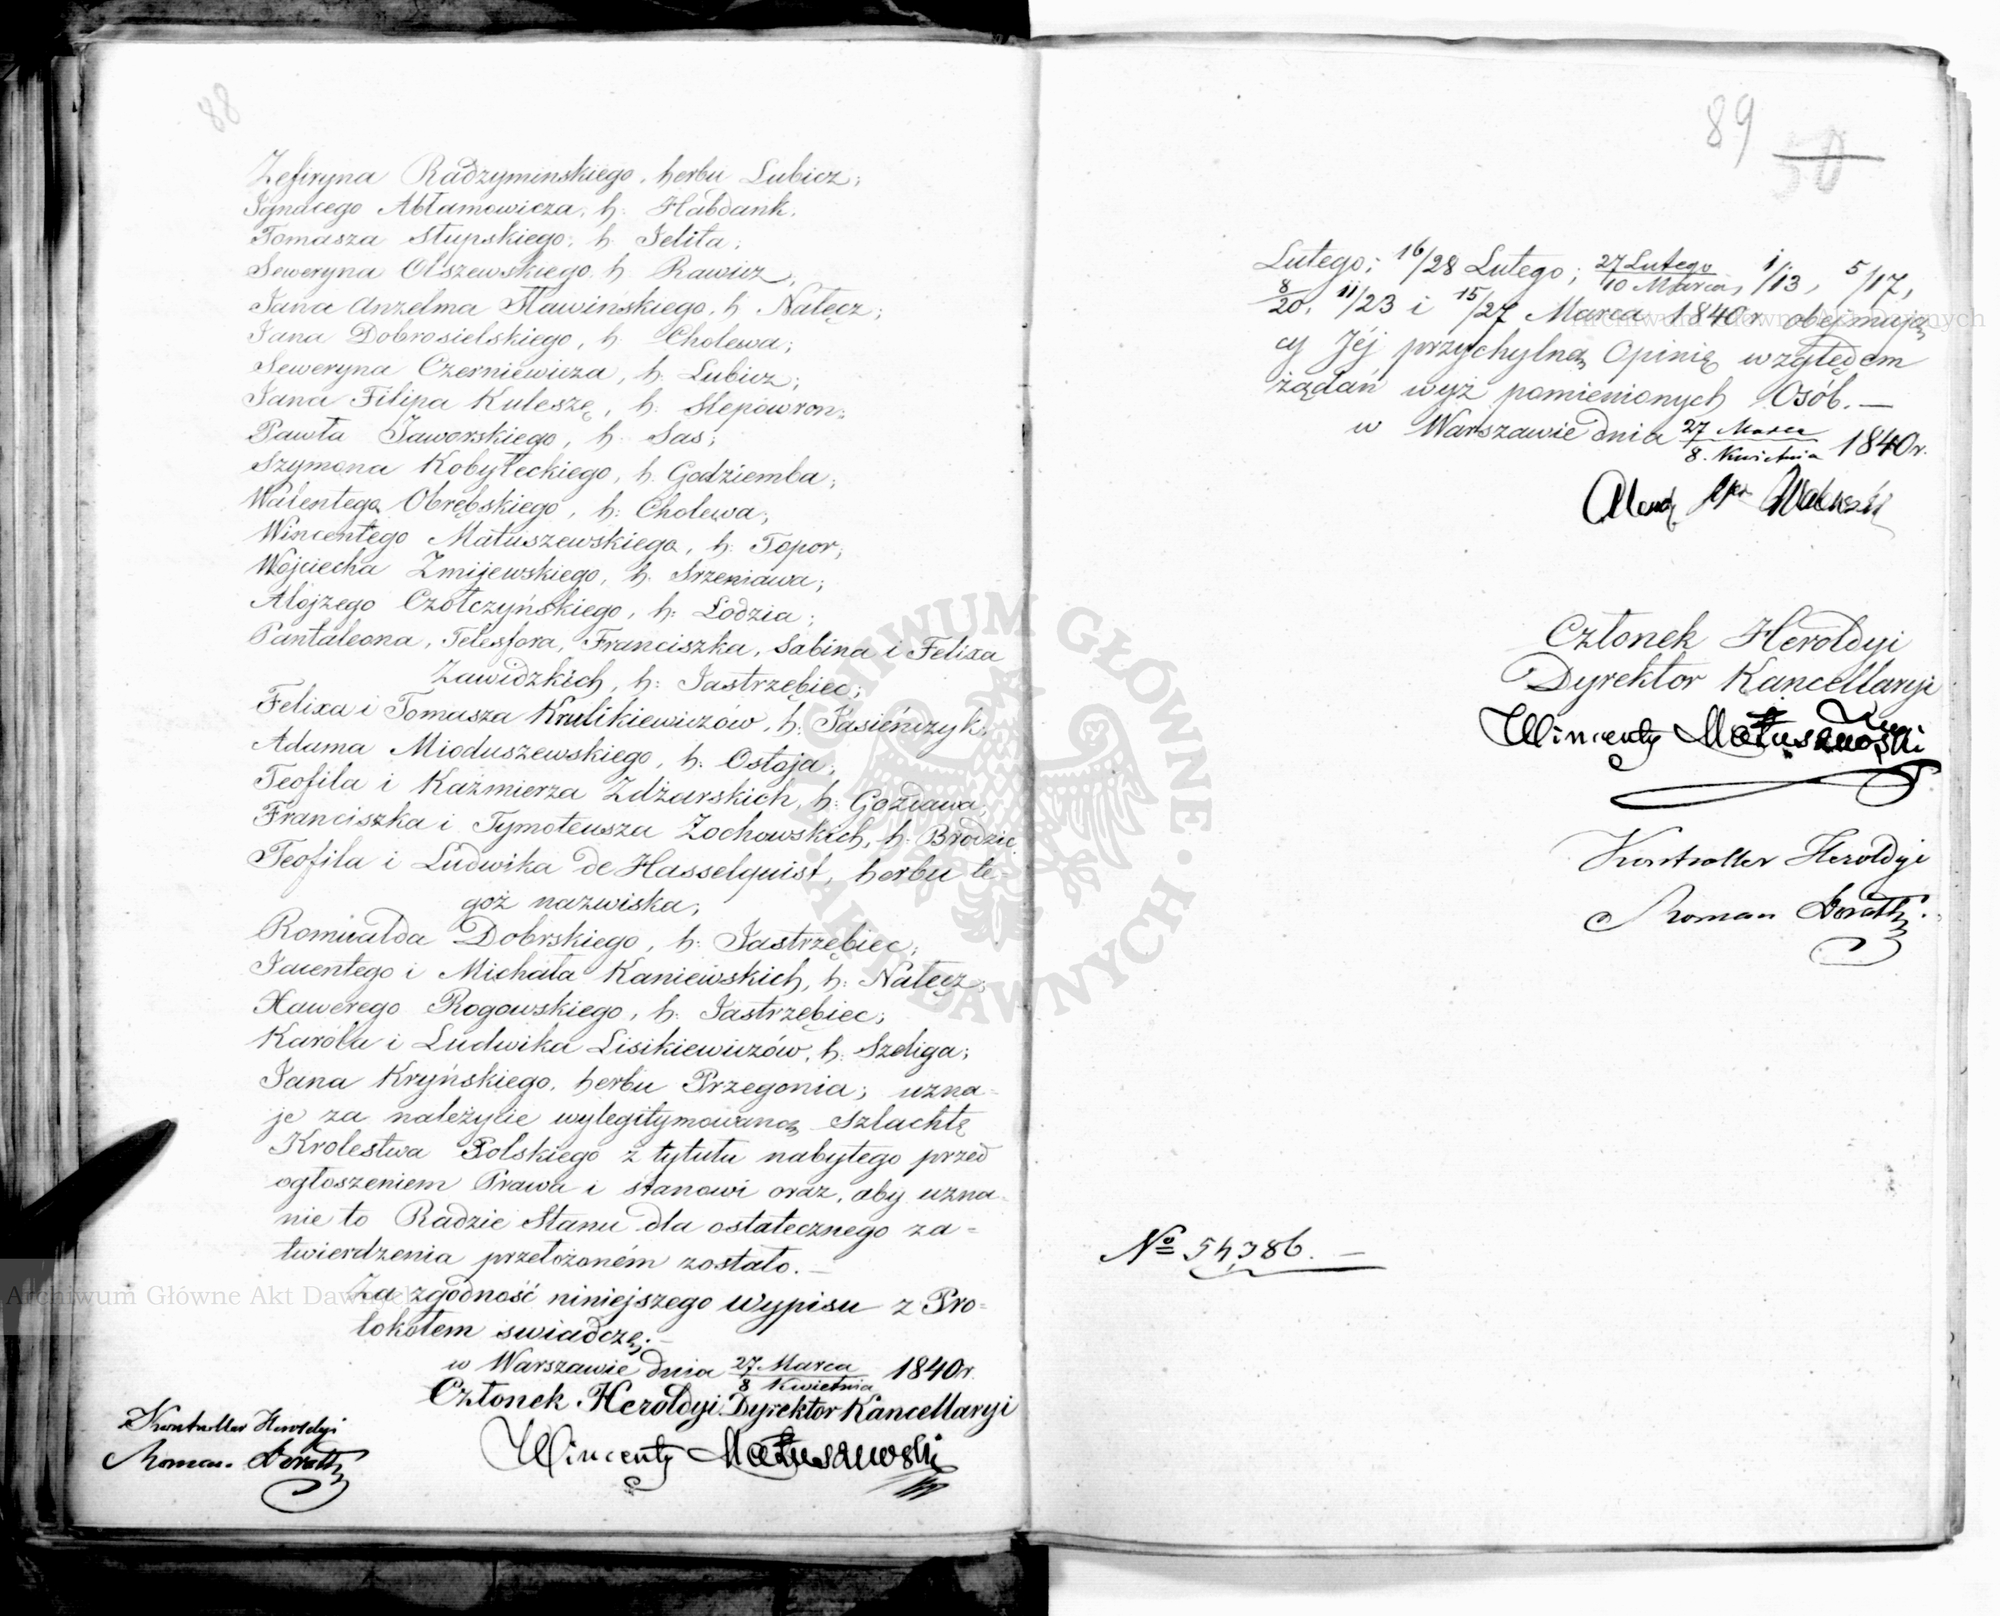 88
Zefiryna Radzyminskiego, herbu Lubicz;
Ignacego Abłamowicza, h: Habdank.
Tomasza Słupskiego, h: Jelita;
Seweryna Olszewskiego, h: Rawicz,
Jana Anzelma Sławińskiego, h: Nałęcz;
Jana Dobrosielskiego, h: Cholewa;
Seweryna Czerniewicza, h: Lubicz;
Jana Filipa Kuleszę, h: Slepowron;
Pawła Jaworskiego, h: Sas;
Szymona Kobyłeckiego, h: Godziemba;
Walentego Obrębskiego, h: Cholewa;
Wincentego Matuszewskiego, h: Topor;
Wojciecha Zmijewskiego, h: Srzeniawa;
Alojzego Czołczyńskiego, h: Lodzia;
Pantaleona, Telesfora, Franciszka, Sabina i Felixa
Zawidzkich, h: Jastrzębiec;
Felixa i Tomasza Krulikiewiczów, h: Jasieńczyk;
Adama Mioduszewskiego, h: Ostoja;
Teofila i Kaźmierza Zdżarskich, h: Gozdawa
Franciszka i Tymoteusza Zochowskich, h: Brodzic
Teofila i Ludwika de Hasselquist, herbu te-
goż nazwiska;
Romualda Dobrskiego, h: Jastrzębiec;
Jacentego i Michała Kaniewskich, h: Nałęcz;
Xawerego Rogowskiego, h: Jastrzębiec;
Karola i Ludwika Lisikiewiczów, h: Szeliga;
Jana Kryńskiego, herbu Przegonia; uzna-
je za należycie wylegitymowaną szlachtę
Krolestwa Polskiego z tytułu nabytego przed
ogłoszeniem Prawa i stanowi oraz, aby uzna-
nie to Radzie Stanu dla ostatecznego za-
twierdzenia przełożoném zostało.—
Za zgodność niniejszego wypisu z Pro-
tokołem swiadczę.—
w Warszawie dnia 27 Marca / 8 Kwietnia 1840 r.
Członek Heroldyi Dyrektor Kancellaryi
Wincenty Matuszewski
Kontroller Heroldyi
Roman
89
50
Lutego; 16/28 Lutego; 27 Lutego / 10 Marca, 1/13, 5/17,
8/20, 11/23 i 15/27 Marca 1840 r. obejmują
cy Jéj przychylną Opinię względem
żądań wyż pomienionych Osób.—
w Warszawie dnia 27 Marca / 8. Kwietnia 1840 r.
Członek Heroldyi
Dyrektor Kancellaryi
Wincenty Matuszewski
Kontroller Heroldyi
Roman
№ 54,386.—
ARCHIWUM GŁÓWNE · AKT DAWNYCH ·
Archiwum Główne Akt Dawnych
Archiwum Główne Akt Dawnych